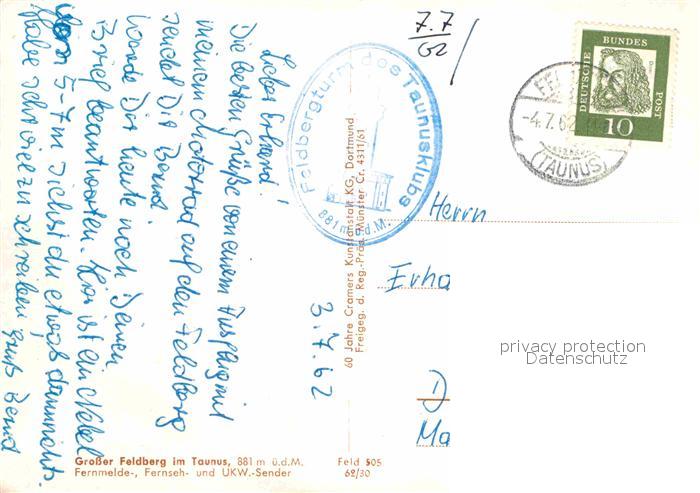 Lieber Erhard!
Die besten Grüße von einem Ausflug mit
meinem Motorrad auf den Feldberg
sendet Dir Bernd
Werde Dir heute noch Deinen
Brief beantworten. Hier ist ein Nebel
5-7 m siehst du etwas dann nichts.
Habe
viel zu schreiben Gruß Bernd
3.7.62
7.7
62
Feldbergturm des Taunusklubs
881 m ü.d.M.
60 Jahre Cramers Kunstanstalt KG, Dortmund
Freigeg. d. Reg.-Präs. Münster Cr. 4311/61
DEUTSCHE BUNDES POST
10
-4.7.62
(TAUNUS)
Herrn
Erha
Ma
privacy protection
Datenschutz
Großer Feldberg im Taunus, 881 m ü.d.M.
Fernmelde-, Fernseh- und UKW.-Sender
Feld 505
62/30